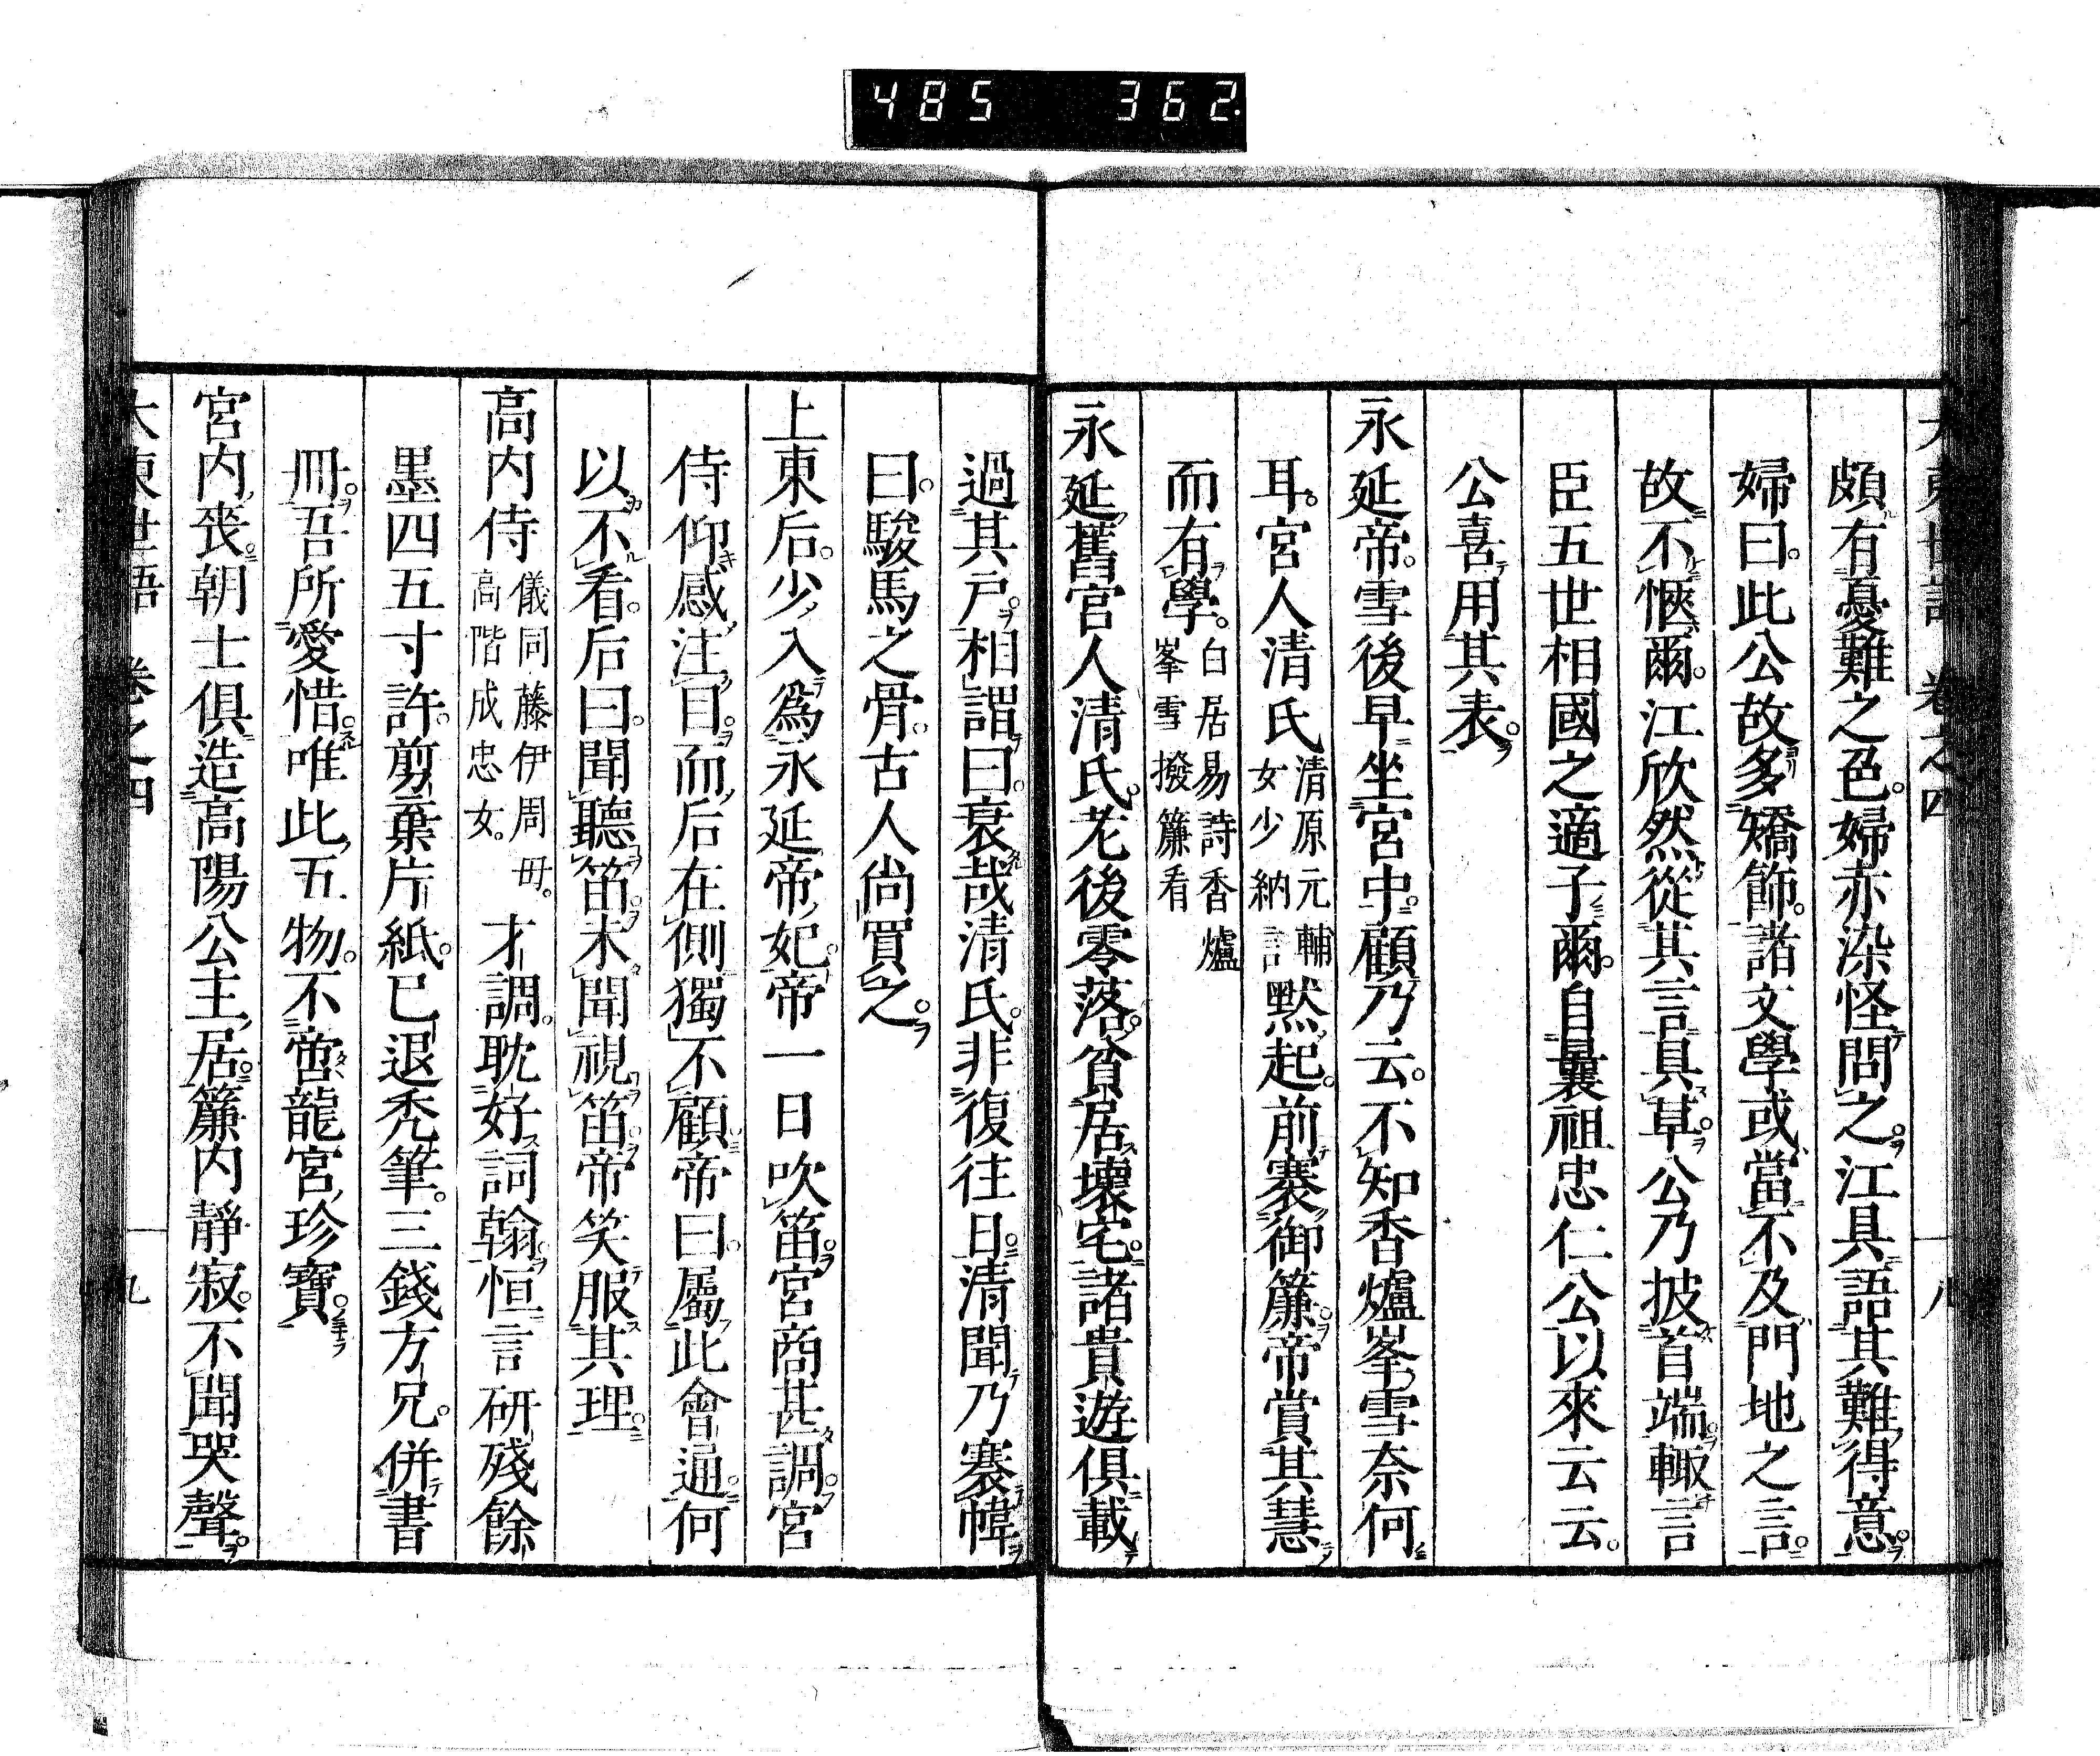 485 362
大東世語 卷之四 八
頗有憂難之色。婦亦染怪問之。江具語其難得意。
婦曰。此公故多矯飾。諸文學或當不及門地之言。
故不愜爾。江欣然從其言具草。公乃披首端輙言
臣五世相國之適子爾。自曩祖忠仁公以來云云。
公喜用其表。
永延帝。雪後早坐宮中。顧乃云。不知香爐峯雪奈何
耳。宮人清氏清原元輔女少納言默起。前褰御簾。帝賞其慧
而有學。白居易詩香爐峯雪撥簾看
永延舊宮人清氏。老後零落。貧居壞宅。諸貴遊俱載
過其戶。相謂曰。衰哉清氏。非復往日。清聞乃褰幃
曰。駿馬之骨。古人尙買之。
上東后。少入爲永延帝妃。帝一日吹笛。宮商甚調。宮
侍仰感注目。而后在側獨不顧。帝曰。屬此會通。何
以不看。后曰。聞聽笛。未聞視笛。帝笑服其理。
高內侍儀同藤伊周母。高階成忠女。才調。耽好詞翰。恒言研殘餘
墨四五寸許。剪棄片紙。已退禿筆。三錢方兄。併書
冊。吾所愛惜。唯此五物。不啻龍宮珍寶。
宮內喪。朝士俱造高陽公主居。簾內靜寂。不聞哭聲。
大東世語 卷之四 九